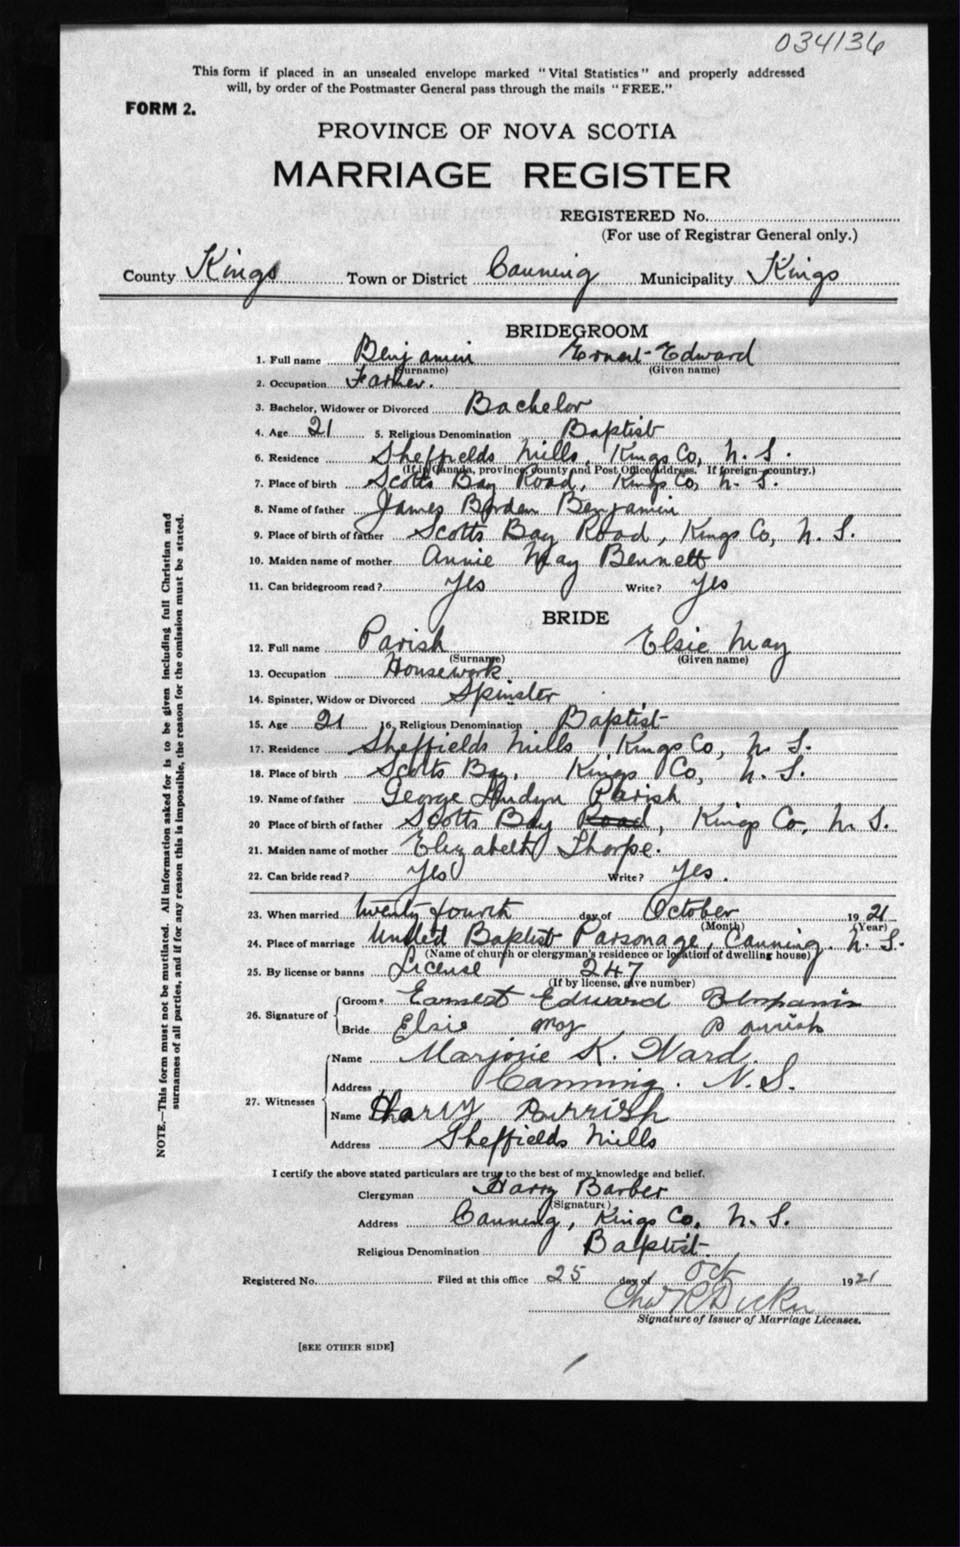 034136
This form if placed in an unsealed envelope marked "Vital Statistics" and properly addressed
will, by order of the Postmaster General pass through the mails "FREE."
FORM 2.
PROVINCE OF NOVA SCOTIA
MARRIAGE REGISTER
REGISTERED No.
(For use of Registrar General only.)
County Kings Town or District Canning Municipality Kings
BRIDEGROOM
1. Full name Benjamin Ernest Edward
(Surname) (Given name)
2. Occupation Farmer.
3. Bachelor, Widower or Divorced Bachelor
4. Age 21 5. Religious Denomination Baptist
6. Residence Sheffields Mills, Kings Co, N. S.
(If in Canada, province, county and Post Office address. If foreign country.)
7. Place of birth Scotts Bay Road, Kings Co, N. S.
8. Name of father James Borden Benjamin
9. Place of birth of father Scotts Bay Road, Kings Co, N. S.
10. Maiden name of mother Annie May Bennett
11. Can bridegroom read? Yes Write? Yes
BRIDE
12. Full name Parish Elsie May
(Surname) (Given name)
13. Occupation Housework
14. Spinster, Widow or Divorced Spinster
15. Age 21 16. Religious Denomination Baptist
17. Residence Sheffields Mills, Kings Co, N. S.
18. Place of birth Scotts Bay, Kings Co, N. S.
19. Name of father George Parish
20 Place of birth of father Scotts Bay Road, Kings Co, N. S.
21. Maiden name of mother Elizabeth Thorpe.
22. Can bride read? Yes Write? Yes.
23. When married twenty fourth day of October 1921
(Month) (Year)
24. Place of marriage United Baptist Parsonage, Canning. N. S.
(Name of church or clergyman's residence or location of dwelling house)
25. By license or banns License 247
(If by license, give number)
26. Signature of
Groom Earnest Edward Benjamin
Bride Elsie May Parrish
27. Witnesses
Name Marjorie K. Ward.
Address Canning. N.S.
Name Harry Parrish
Address Sheffields Mills
I certify the above stated particulars are true to the best of my knowledge and belief.
Clergyman Harry Barber
(Signature)
Address Canning, Kings Co. N. S.
Religious Denomination Baptist.
Registered No. Filed at this office 25 day of Oct 1921
Chas R Dickie
Signature of Issuer of Marriage Licenses.
[SEE OTHER SIDE]
NOTE.—This form must not be mutilated. All information asked for is to be given including full Christian and
surnames of all parties, and if for any reason this is impossible, the reason for the omission must be stated.